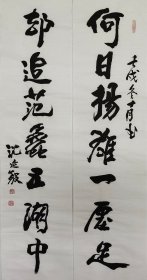 何日扬雄一廛足
壬戌冬十月书
却追范蠡五湖中
沈延毅